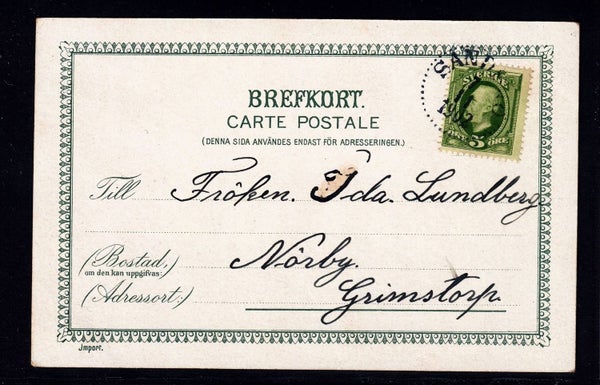 SANDA
1902
SVERIGE
5 ÖRE
BREFKORT.
CARTE POSTALE
(DENNA SIDA ANVÄNDES ENDAST FÖR ADRESSERINGEN.)
Till Fröken. Ida. Lundberg
(Bostad,) Nörby.
om den kan uppgifvas:
(Adressort:) Grimstorp.
Import.